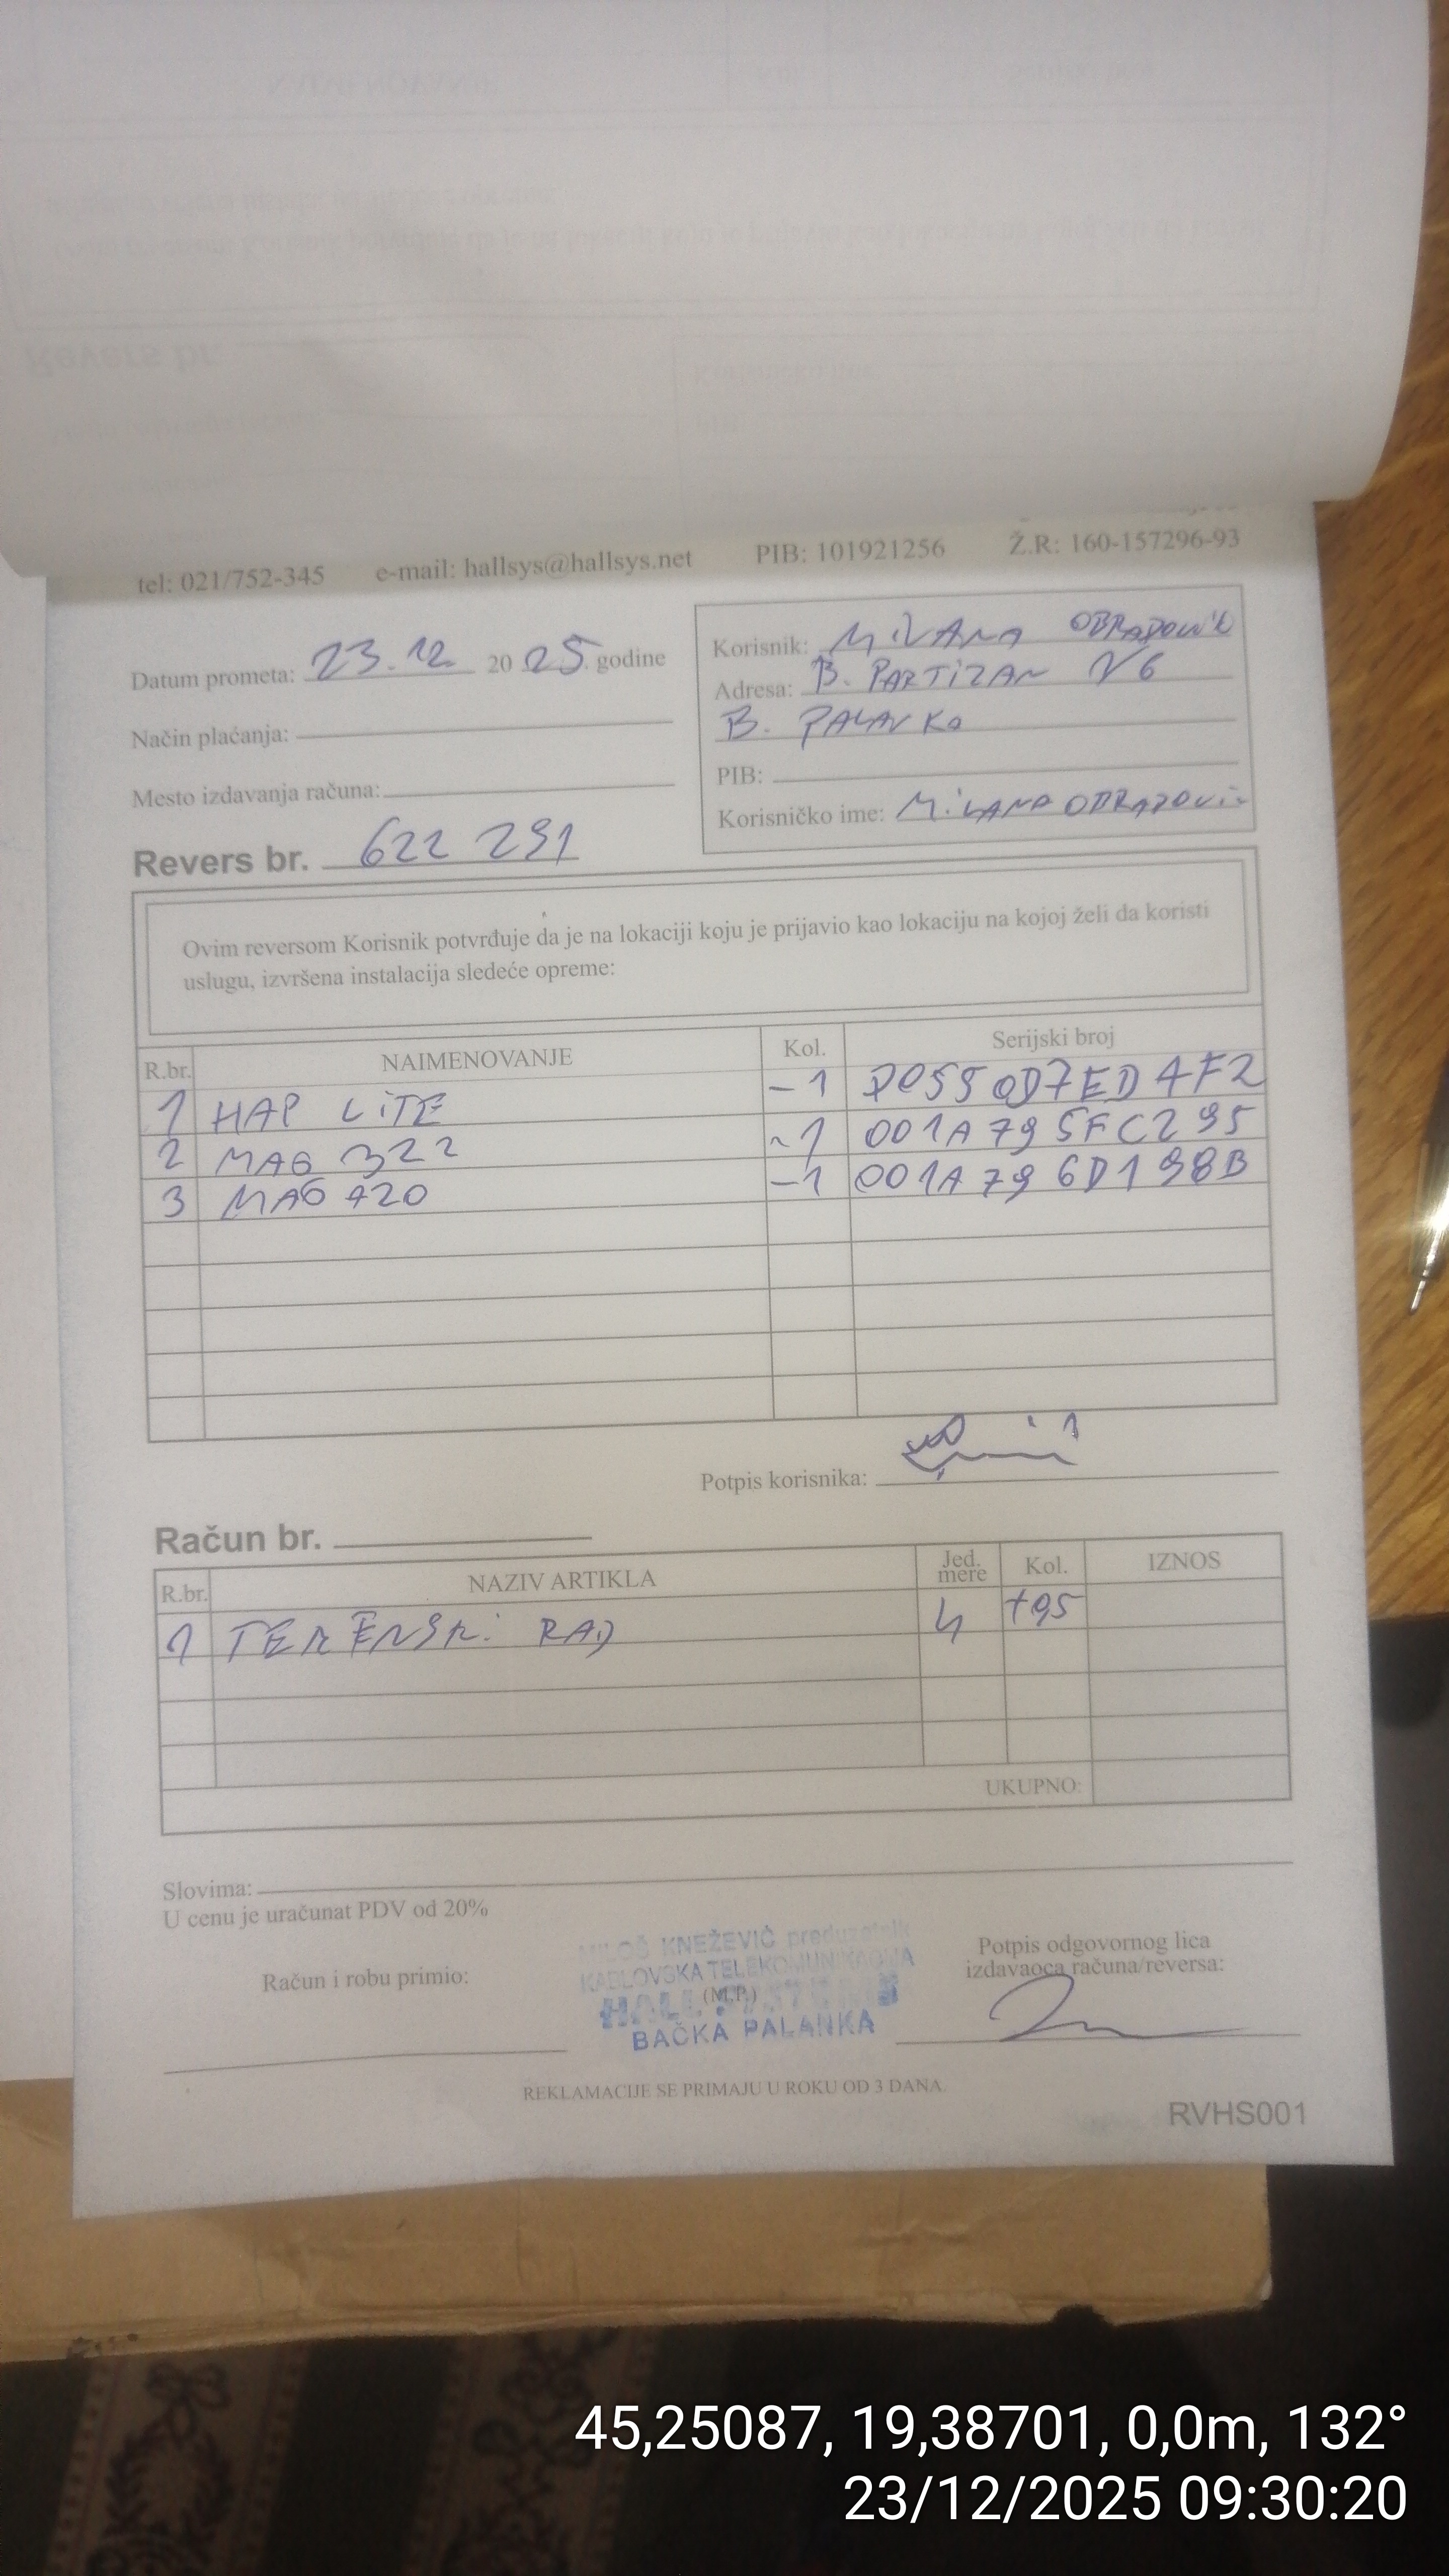 tel: 021/752-345 e-mail: hallsys@hallsys.net PIB: 101921256 Ž.R: 160-157296-93
Datum prometa: 23.12. 2025. godine
Način plaćanja:
Mesto izdavanja računa:
Revers br. 622 291
Korisnik: MILANA OBRADOVIĆ
Adresa: B. PARTIZAN
B. PALANKA
PIB:
Korisničko ime: MILANA OBRADOVIĆ
Ovim reversom Korisnik potvrđuje da je na lokaciji koju je prijavio kao lokaciju na kojoj želi da koristi
uslugu, izvršena instalacija sledeće opreme:
R.br. NAIMENOVANJE Kol. Serijski broj
1 HAP LITE -1
2 MAG 322 -1 001A795FC295
3 MAG 420 -1 001A796D198B
Potpis korisnika:
Račun br.
R.br. NAZIV ARTIKLA Jed. mere Kol. IZNOS
1 TERENSKI RAD
UKUPNO:
Slovima:
U cenu je uračunat PDV od 20%
Račun i robu primio:
MILOŠ KNEŽEVIĆ preduzetnik
KABLOVSKA TELEKOMUNIKACIJA
(M.P.)
BAČKA PALANKA
Potpis odgovornog lica
izdavaoca računa/reversa:
REKLAMACIJE SE PRIMAJU U ROKU OD 3 DANA.
RVHS001
45,25087, 19,38701, 0,0m, 132°
23/12/2025 09:30:20